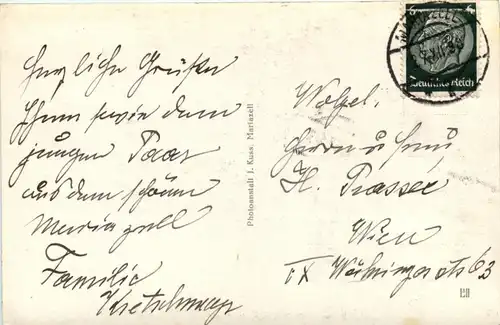 Herzliche Grüße
Ihnen sowie dem
jungen Paar
aus dem schönen
Mariazell
Familie
Kretschmayr
Photoanstalt J. Kuss, Mariazell
Deutsches Reich
Herrn u
H. Prassée
Wien
IX Währingerstr 63